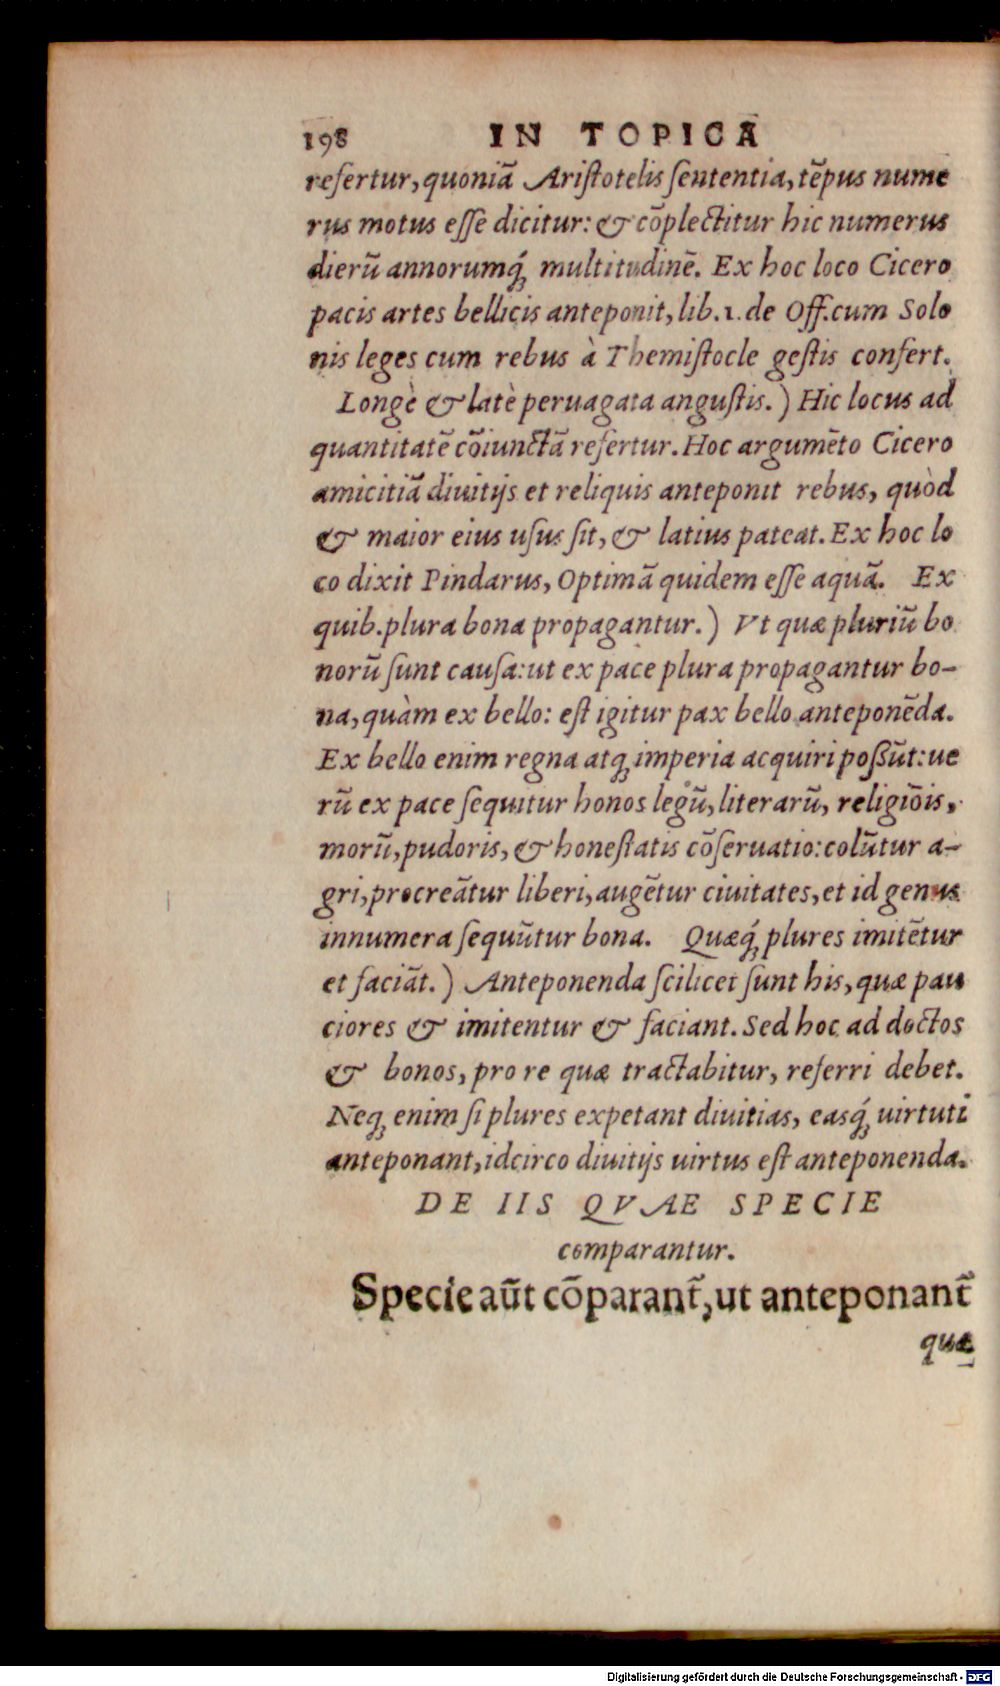 198 IN TOPICA
refertur, quoniã Ariſtotelis ſententia, tẽpus nume
rus motus eſſe dicitur: & cõplectitur hic numerus
dierũ annorumq́; multitudinẽ. Ex hoc loco Cicero
pacis artes bellicis anteponit, lib. 1. de Off. cum Solo
nis leges cum rebus à Themiſtocle geſtis confert.
Longè & latè peruagata anguſtis.) Hic locus ad
quantitatẽ cõiunctã refertur. Hoc argumẽto Cicero
amicitiã diuitijs et reliquis anteponit rebus, quòd
& maior eius uſus ſit, & latius pateat. Ex hoc lo
co dixit Pindarus, Optimã quidem eſſe aquã. Ex
quib. plura bona propagantur.) Vt quæ pluriũ bo
norũ ſunt cauſa: ut ex pace plura propagantur bo-
na, quàm ex bello: eſt igitur pax bello anteponẽda.
Ex bello enim regna atq; imperia acquiri poßũt: ue
rũ ex pace ſequitur honos legũ, literarũ, religiõis,
morũ, pudoris, & honeſtatis cõſeruatio: colũtur a-
gri, procreãtur liberi, augẽtur ciuitates, et id genus
innumera ſequũtur bona. Quæq́; plures imitẽtur
et faciãt.) Anteponenda ſcilicet ſunt his, quæ pau
ciores & imitentur & faciant. Sed hoc ad doctos
& bonos, pro re quæ tractabitur, referri debet.
Neq; enim ſi plures expetant diuitias, easq́; uirtuti
anteponant, idcirco diuitijs uirtus eſt anteponenda.
DE IIS QVAE SPECIE
comparantur.
Specie aũt cõparant̃, ut anteponant̃
quæ
Digitalisierung gefördert durch die Deutsche Forschungsgemeinschaft - DFG